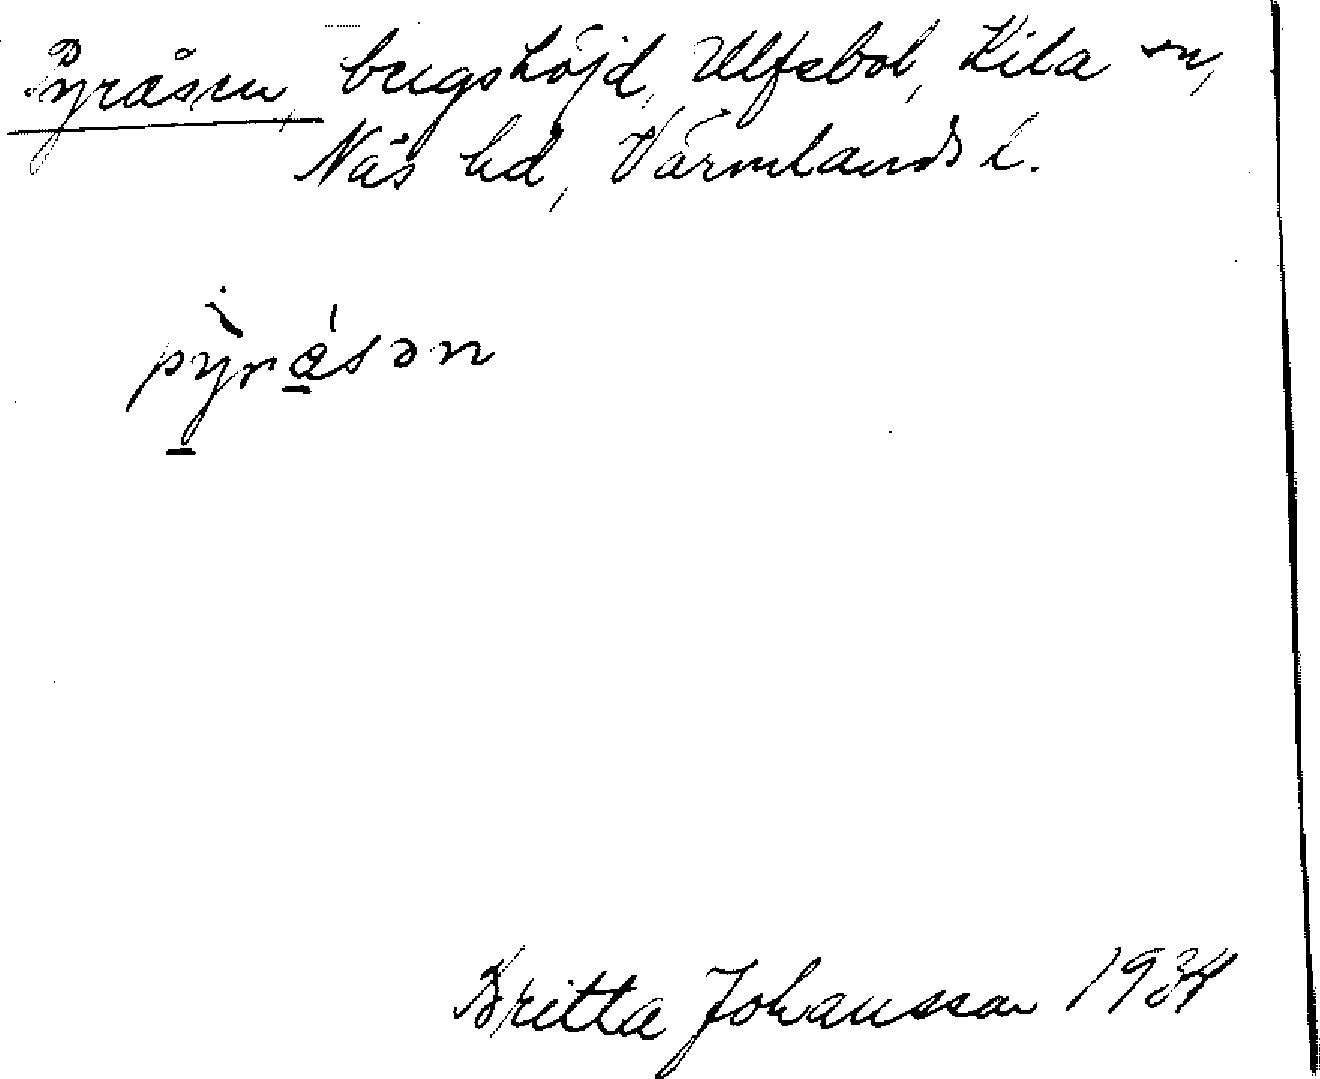 Pyråsen, bergshöjd, Ulfsbol, Kila sn,
Näs hd, Värmlands l.
pỳråsən
Britta Johansson 1934